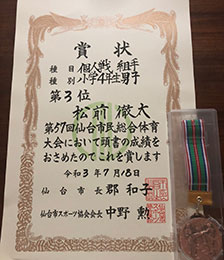 賞状
種目 個人戦 組手
種別 小学4年生男子
第3位
松前 徹大
第57回仙台市民総合体育
大会において頭書の成績を
おさめたのでこれを賞します
令和3年7月18日
仙台市長 郡 和子
仙台市スポーツ協会会長 中野 勲